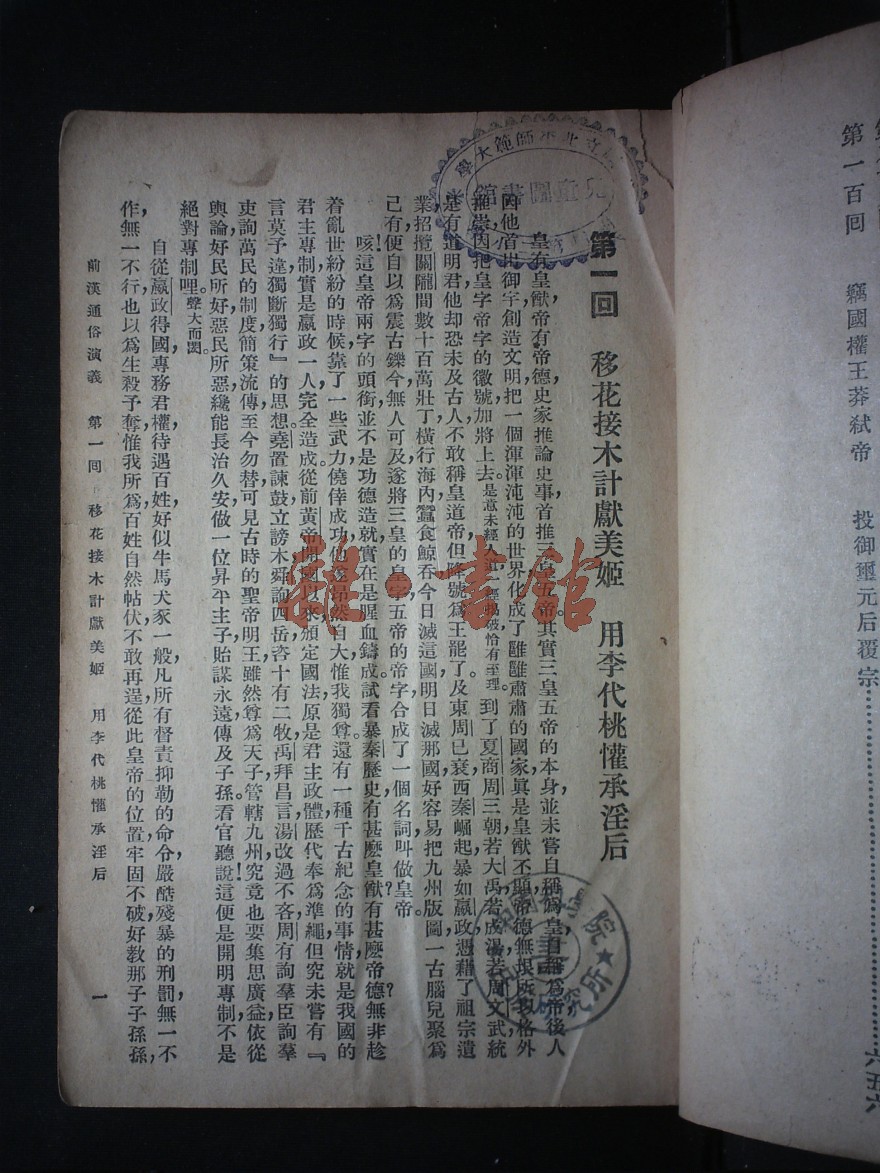 第一百回　竊國權王莽弒帝　投御璽元后覆宗……六五六
第一回　移花接木計獻美姬　用李代桃懽承淫后
皇有皇猷，帝有帝德，史家推論史事，首推三皇五帝。其實三皇五帝的本身，並未嘗自稱爲皇，自稱爲帝，後人
因他首出御宇，創造文明，把一個渾渾沌沌的世界，化成了雝雝肅肅的國家，眞是皇猷丕顯，帝德無垠，所以格外
推崇，因把皇字帝字的徽號，加將上去。是意未經人道，一經揭破，恰有至理。到了夏商周三朝，若大禹，若成湯，若周文武，統
是有道明君，他却恐未及古人，不敢稱皇道帝，但降號爲王罷了。及東周已衰，西秦崛起，暴如嬴政，憑藉了祖宗遺
業，招攬關隴間數十百萬壯丁，橫行海內，蠶食鯨吞，今日滅這國，明日滅那國，好容易把九州版圖，一古腦兒聚爲
己有，便自以爲震古鑠今，無人可及，遂將三皇的皇字，五帝的帝字，合成了一個名詞，叫做皇帝。
咳！這皇帝兩字的頭銜，並不是功德造就，實在是腥血鑄成，試看暴秦歷史，有甚麽皇猷？有甚麽帝德？無非趁
着亂世紛紛的時候，靠了一些武力，僥倖成功，他遂昂然自大，惟我獨尊。還有一種千古紀念的事情，就是我國的
君主專制，實是嬴政一人，完全造成。從前黃帝開國以來，頒定國法，原是君主政體，歷代奉爲準繩，但究未嘗有『
言莫予違，獨斷獨行』的思想。堯置諫鼓，立謗木，舜詢四岳，咨十有二牧，禹拜昌言，湯改過不吝，周有詢羣臣詢羣
吏詢萬民的制度，簡策流傳，至今勿替。可見古時的聖帝明王，雖然尊爲天子，管轄九州，究竟也要集思廣益，依從
輿論，好民所好，惡民所惡，纔能長治久安，做一位昇平主子，貽謀永遠，傳及子孫。看官聽說！這便是開明專制，不是
絕對專制哩。聲大而閎。
自從嬴政得國，專務君權，待遇百姓，好似牛馬犬豕一般，凡所有督責抑勒的命令，嚴酷殘暴的刑罰，無一不
作，無一不行，也以爲生殺予奪，惟我所爲，百姓自然帖伏，不敢再逞，從此皇帝的位置，牢固不破，好教那子子孫孫，
前漢通俗演義　第一回　移花接木計獻美姬　用李代桃懽承淫后　一
師範大學
兒童圖書館
院
究所
雜·書館